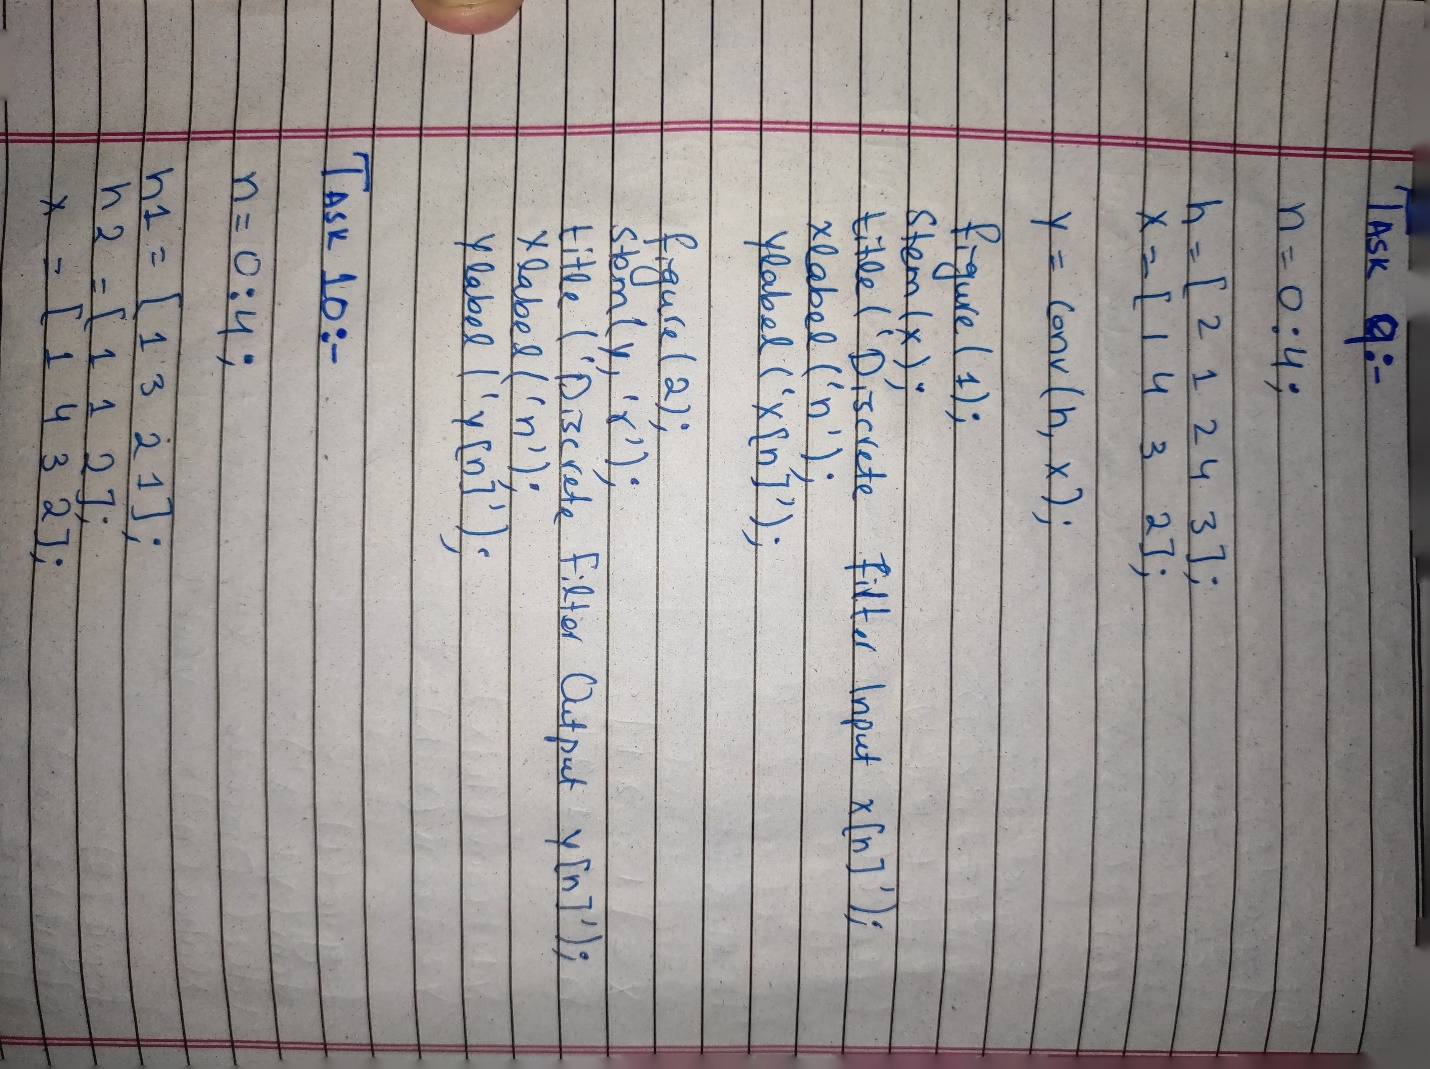 TASK 9:-
n = 0:4;
h = [ 2 1 2 4 3 ];
x = [ 1 4 3 2 ];
y = conv(h, x);
figure(1);
stem(x);
title('Discrete filter Input x[n]');
xlabel('n');
ylabel('x[n]');
figure(2);
stem(y, 'r');
title('Discrete filter Output y[n]');
xlabel('n');
ylabel('y[n]');
TASK 10:-
n = 0:4;
h1 = [ 1 3 2 1 ];
h2 = [ 1 1 2 ];
x = [ 1 4 3 2 ];